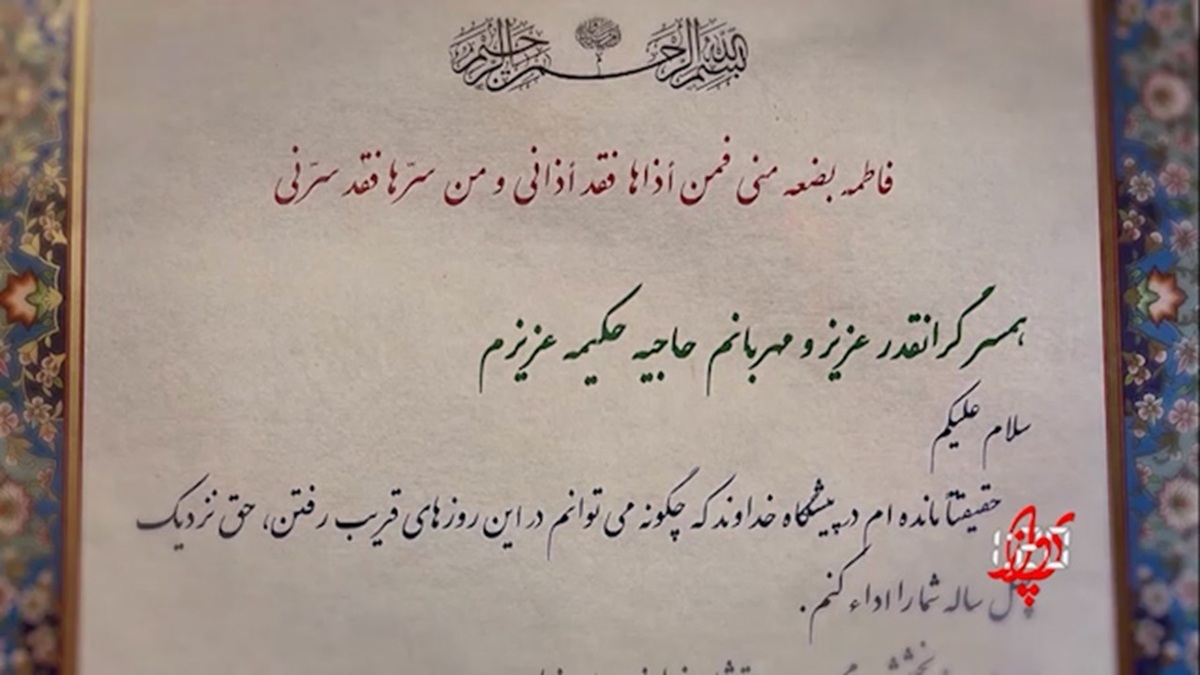 بسم الله الرحمن الرحیم
فاطمه بضعه منی فمن أذاها فقد أذانی و من سرّها فقد سرّنی
همسر گرانقدر عزیز و مهربانم حاجیه حکیمه عزیزم
سلام علیکم
حقیقتاً مانده ام در پیشگاه خداوند که چگونه می توانم در این روزهای قریب رفتن، حق نزدیک
چهل ساله شما را اداء کنم.